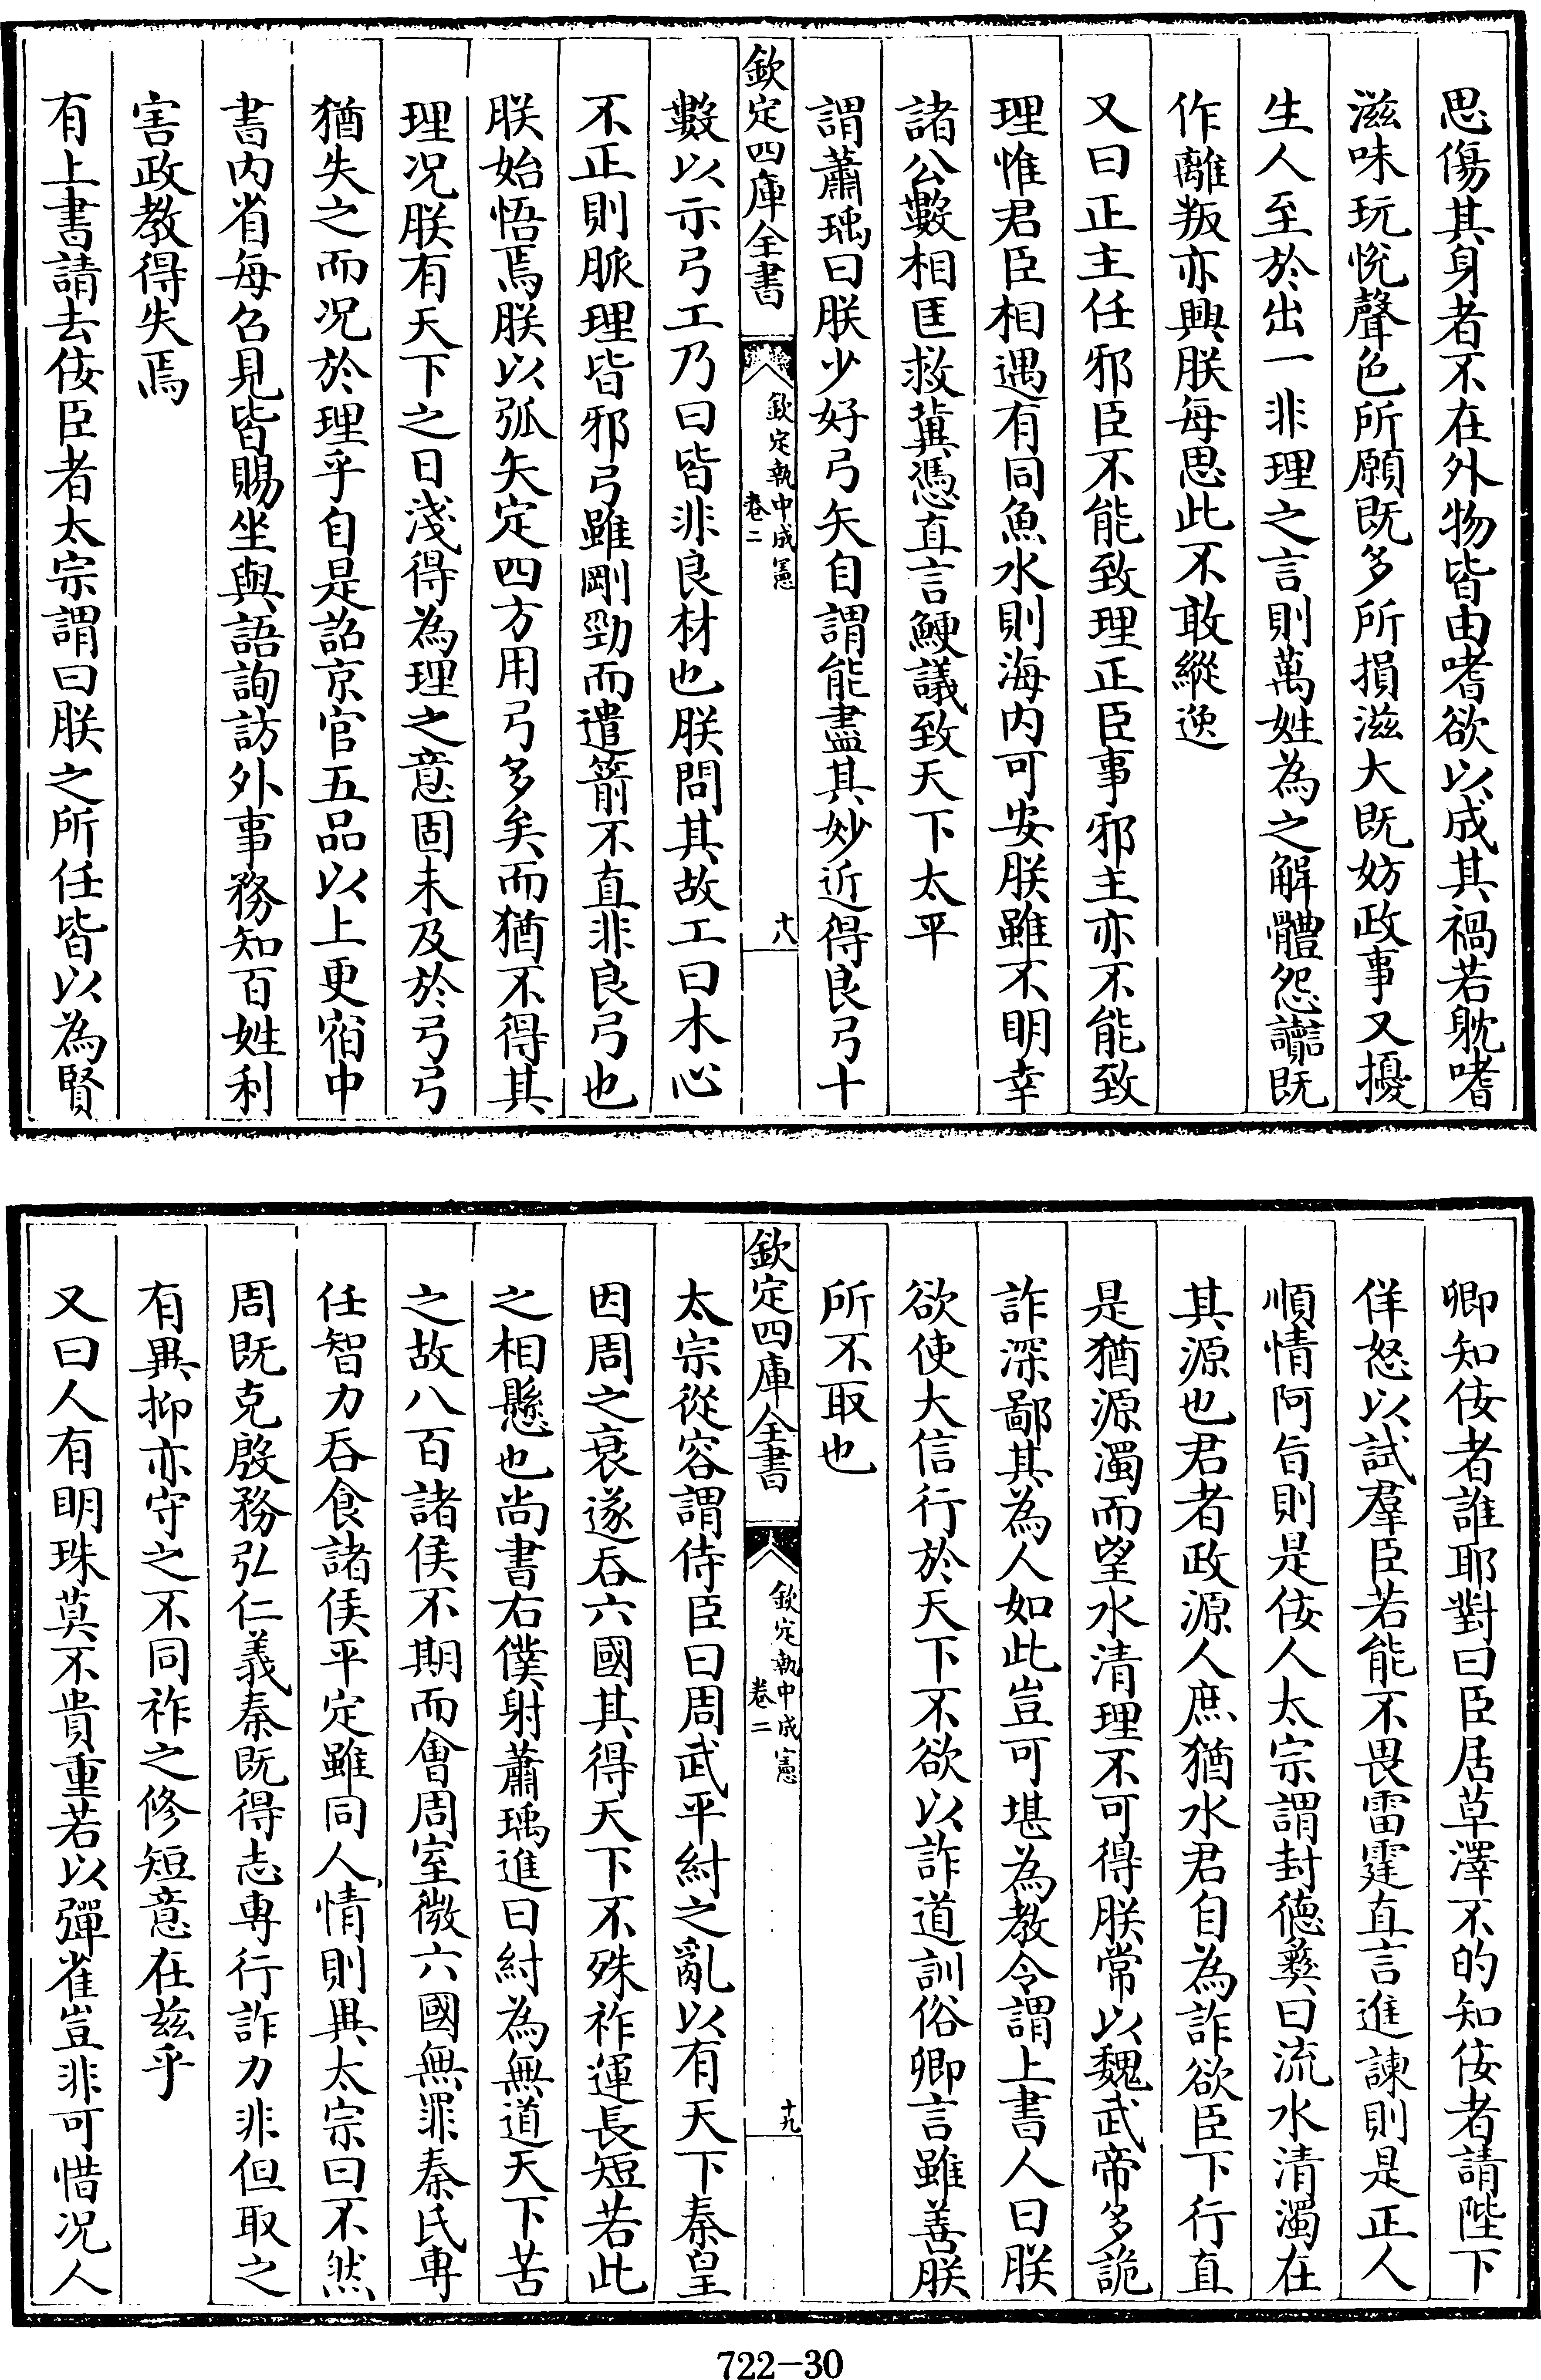 思傷其身者不在外物皆由嗜欲以成其禍若躭嗜
滋味玩悅聲色所願既多所損滋大既妨政事又擾
生人至於出一非理之言則萬姓為之解體怨讟既
作離叛亦興朕每思此不敢縱逸
又曰正主任邪臣不能致理正臣事邪主亦不能致
理惟君臣相遇有同魚水則海内可安朕雖不明幸
諸公數相匡救冀憑直言鯁議致天下太平
謂蕭瑀曰朕少好弓矢自謂能盡其妙近得良弓十
欽定四庫全書
欽定執中成憲
卷二
十八
數以示弓工乃曰皆非良材也朕問其故工曰木心
不正則脈理皆邪弓雖剛勁而遣箭不直非良弓也
朕始悟焉朕以弧矢定四方用弓多矣而猶不得其
理况朕有天下之日淺得為理之意固未及於弓弓
猶失之而况於理乎自是詔京官五品以上更宿中
書内省每召見皆賜坐與語詢訪外事務知百姓利
害政教得失焉
有上書請去佞臣者太宗謂曰朕之所任皆以為賢
卿知佞者誰耶對曰臣居草澤不的知佞者請陛下
佯怒以試羣臣若能不畏雷霆直言進諫則是正人
順情阿旨則是佞人太宗謂封德彝曰流水清濁在
其源也君者政源人庶猶水君自為詐欲臣下行直
是猶源濁而望水清理不可得朕常以魏武帝多詭
詐深鄙其為人如此豈可堪為教令謂上書人曰朕
欲使大信行於天下不欲以詐道訓俗卿言雖善朕
所不取也
欽定四庫全書
欽定執中成憲
卷二
十九
太宗從容謂侍臣曰周武平紂之亂以有天下秦皇
因周之衰遂吞六國其得天下不殊祚運長短若此
之相懸也尚書右僕射蕭瑀進曰紂為無道天下苦
之故八百諸侯不期而會周室微六國無罪秦氏専
任智力吞食諸侯平定雖同人情則異太宗曰不然
周既克殷務弘仁義秦既得志専行詐力非但取之
有異抑亦守之不同祚之修短意在兹乎
又曰人有明珠莫不貴重若以彈雀豈非可惜况人
722-30